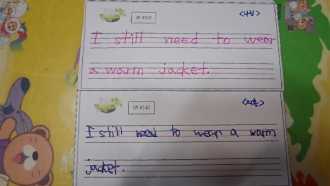 I still need to wear
a warm jacket.
I still need to wear a warm
jacket.